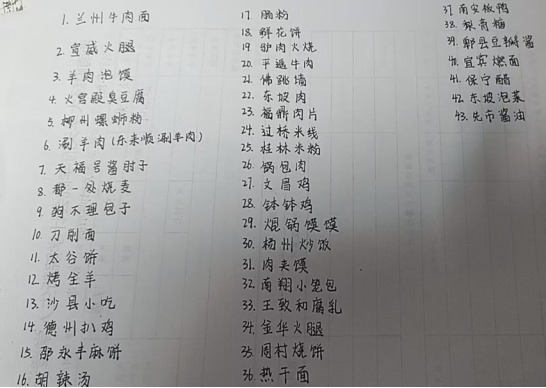 1. 兰州牛肉面
2. 宣威火腿
3. 羊肉泡馍
4. 火宫殿臭豆腐
5. 柳州螺蛳粉
6. 涮羊肉(东来顺涮羊肉)
7. 天福号酱肘子
8. 都一处烧麦
9. 狗不理包子
10. 刀削面
11. 太谷饼
12. 烤全羊
13. 沙县小吃
14. 德州扒鸡
15. 邵永丰麻饼
16. 胡辣汤
17. 肠粉
18. 鲜花饼
19. 驴肉火烧
20. 平遥牛肉
21. 佛跳墙
22. 东坡肉
23. 福鼎肉片
24. 过桥米线
25. 桂林米粉
26. 锅包肉
27. 文昌鸡
28. 钵钵鸡
29. 焜锅馍馍
30. 杨州炒饭
31. 肉夹馍
32. 南翔小笼包
33. 王致和腐乳
34. 金华火腿
35. 周村烧饼
36. 热干面
37. 南安板鸭
38. 梨膏糖
39. 郫县豆瓣酱
40. 宜宾燃面
41. 保宁醋
42. 东坡泡菜
43. 先市酱油